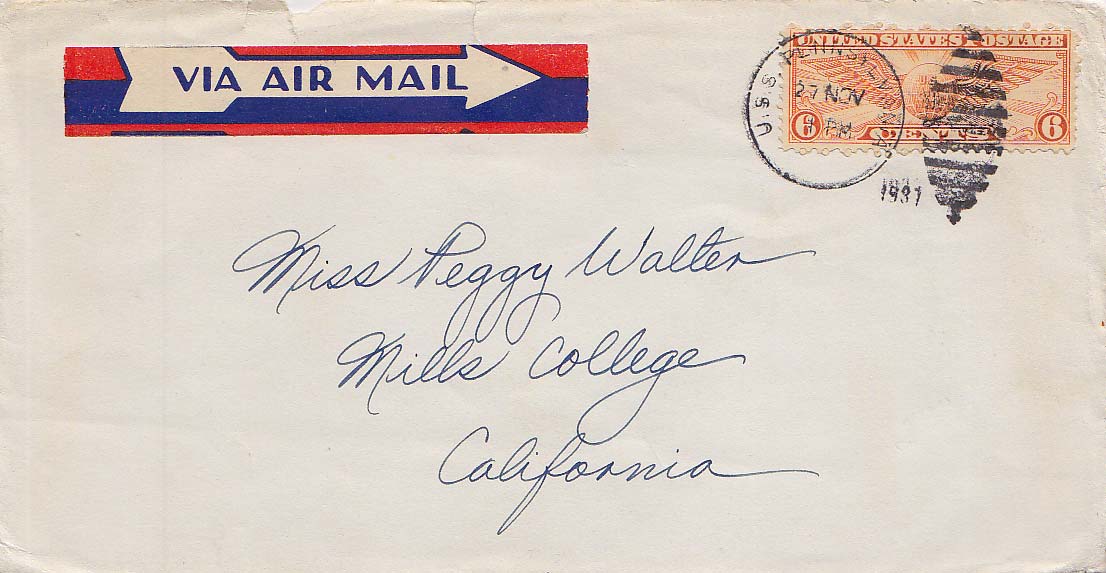 VIA AIR MAIL
UNITED STATES POSTAGE
6 CENTS 6
U.S.S.
27 NOV
PM
1931
Miss Peggy Walter
Mills College
California